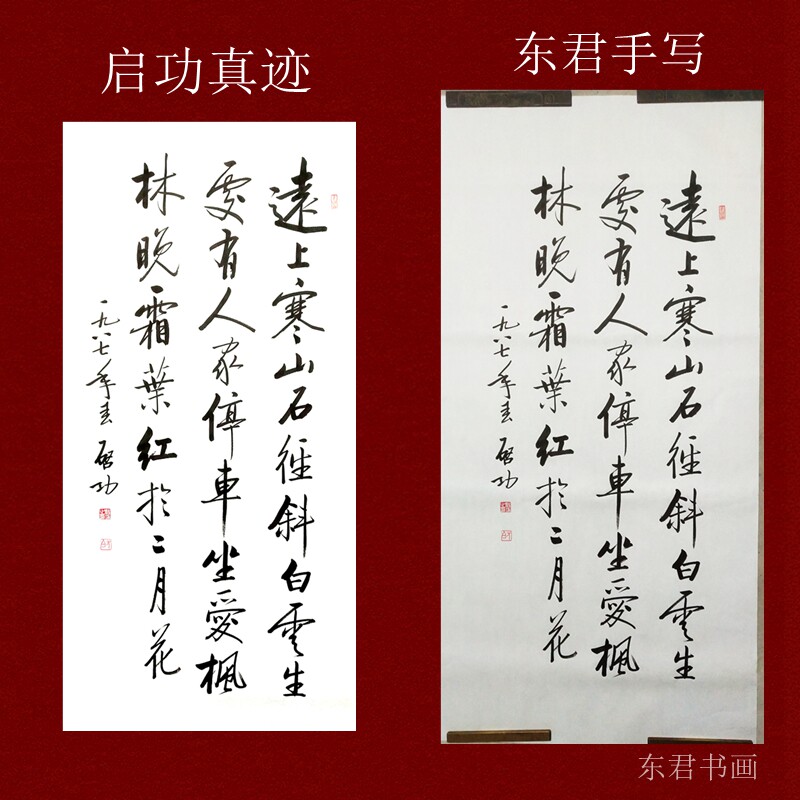 启功真迹
遠上寒山石徑斜白雲生
處有人家停車坐愛楓
林晚霜葉紅於二月花
一九八七年春 啟功
东君手写
遠上寒山石徑斜白雲生
處有人家停車坐愛楓
林晚霜葉紅於二月花
一九八七年春 啟功
东君书画